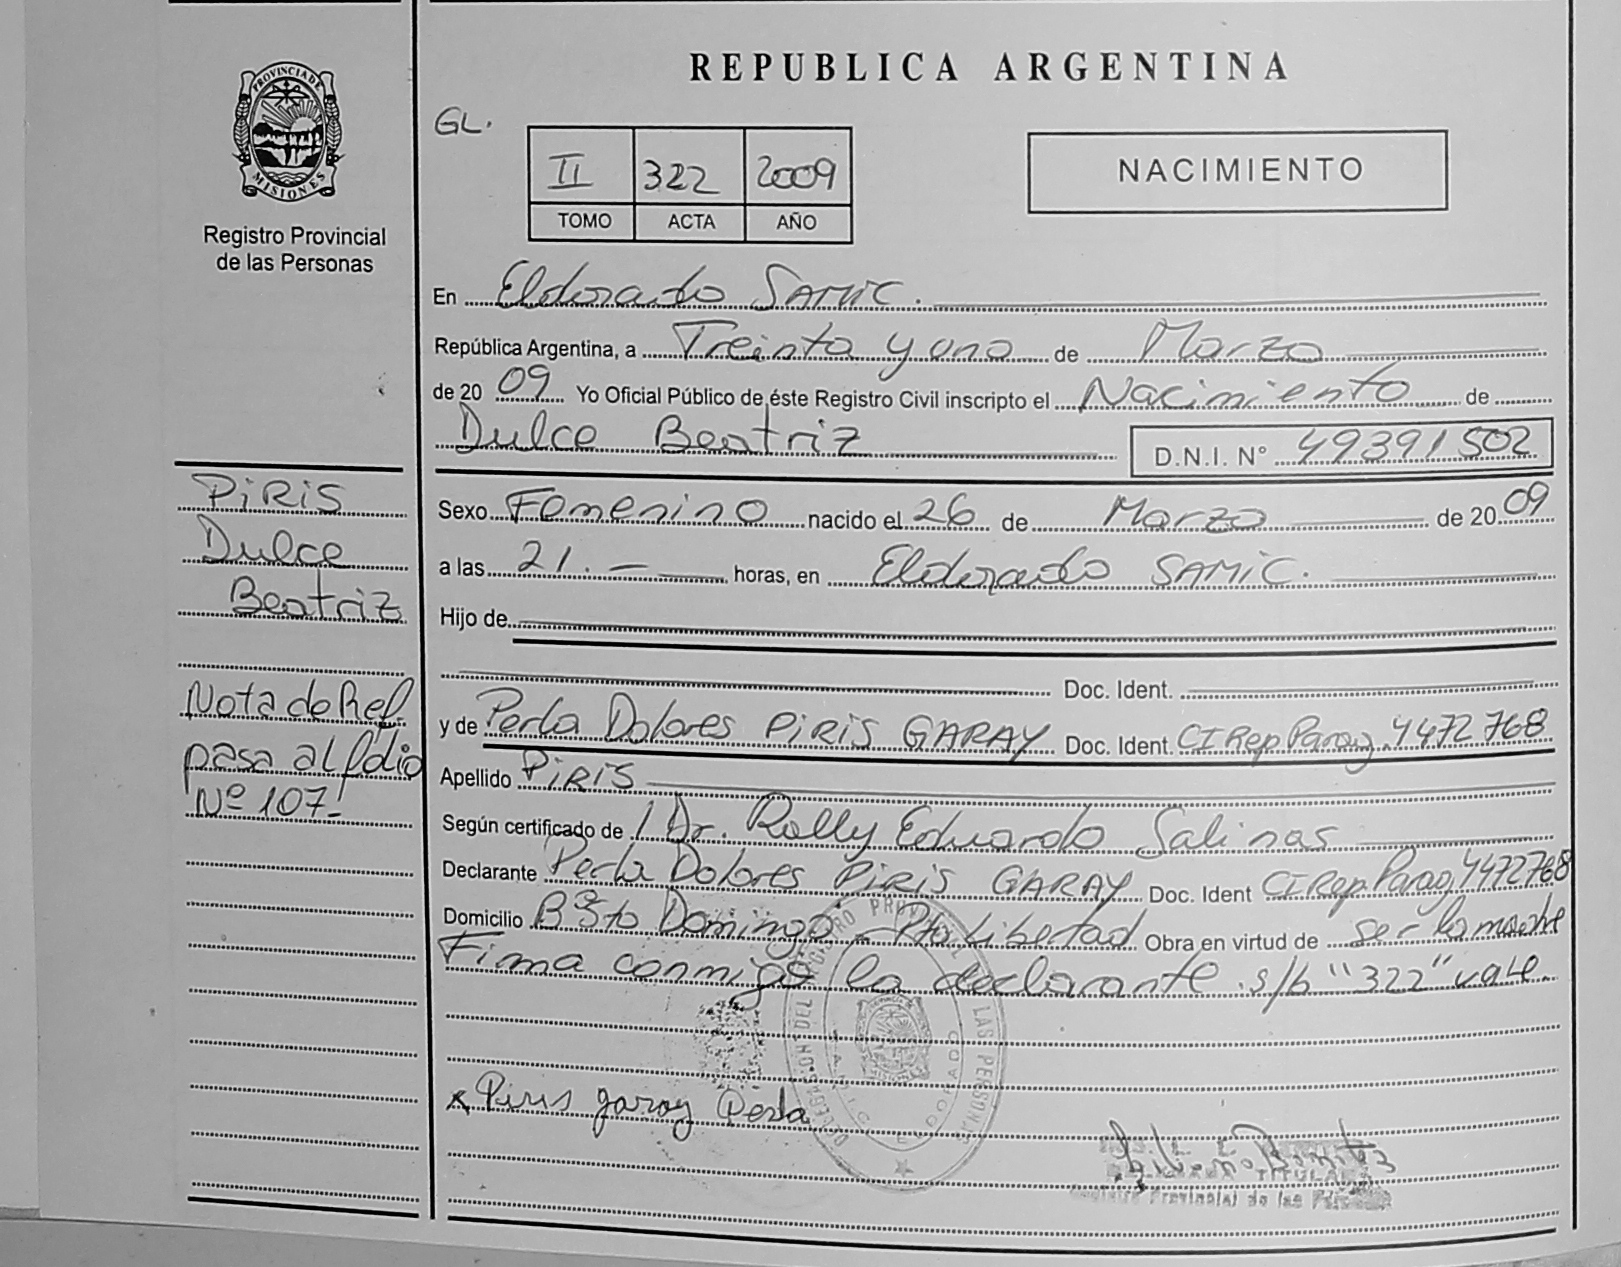 REPUBLICA ARGENTINA
PROVINCIA DE MISIONES
Registro Provincial
de las Personas
GL.
II 322 2009
TOMO ACTA AÑO
NACIMIENTO
En Eldorado SAMIC.
República Argentina, a Treinta y uno de Marzo
de 2009 Yo Oficial Público de éste Registro Civil inscripto el Nacimiento de
Dulce Beatriz D.N.I. N° 49391502
PIRIS
Dulce
Beatriz
Nota de Ref.
pasa al folio
Nº 107.-
Sexo Femenino nacido el 26 de Marzo de 2009
a las 21.- horas, en Eldorado SAMIC.
Hijo de
Doc. Ident.
y de Perla Dolores PIRIS GARAY Doc. Ident. CI Rep Parag. 4472768
Apellido PIRIS
Según certificado de Dr. Rolly Eduardo Salinas
Declarante Perla Dolores PIRIS GARAY Doc. Ident CI Rep. Parag 4472768
Domicilio Bº Sto Domingo - Pto Libertad Obra en virtud de ser la madre
Firma conmigo la declarante s/b "322" vale
DELEGACION DEL REGISTRO PROVINCIAL DE LAS PERSONAS
SAMIC ELDORADO
x Piris garay Perla
TITULAR
Registro Provincial de las